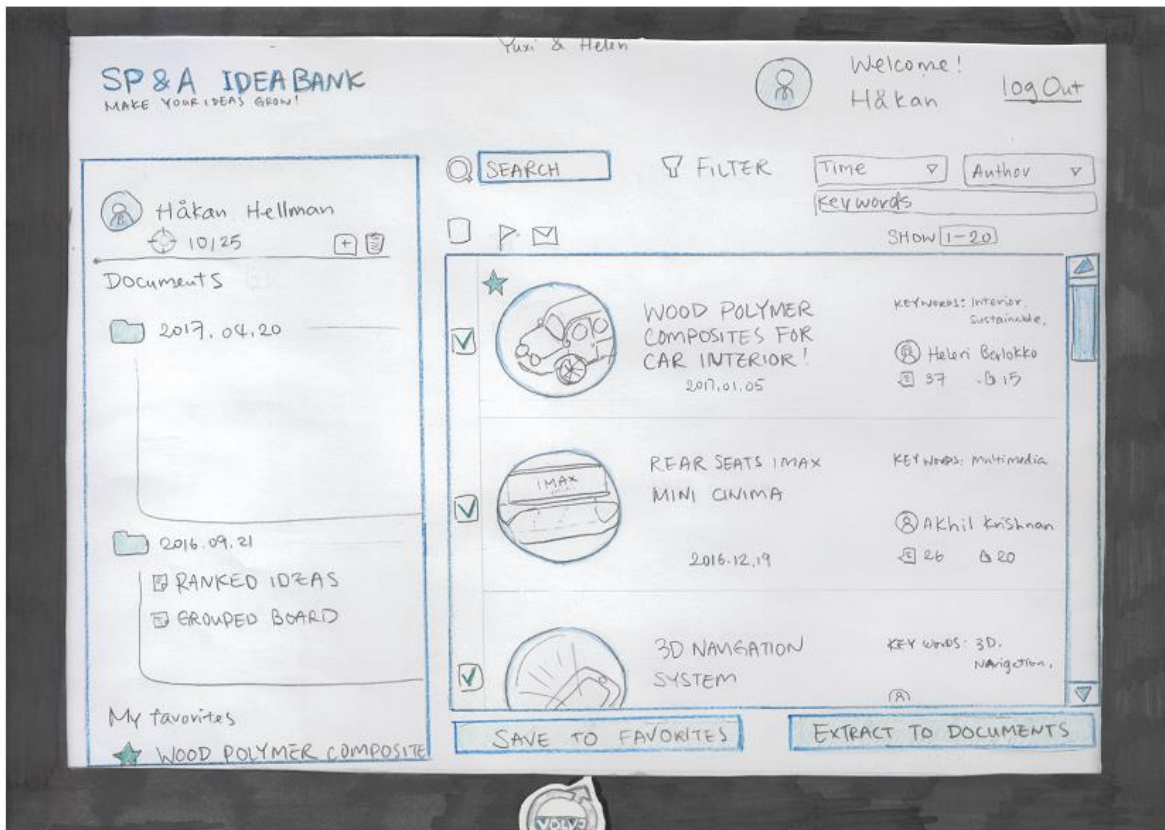 Yuxi & Helen
SP & A IDEABANK
MAKE YOUR IDEAS GROW!
Welcome!
Håkan
logOut
Håkan Hellman
10/25
Documents
2017.04.20
2016.09.21
RANKED IDEAS
GROUPED BOARD
My favorites
WOOD POLYMER COMPOSITE
SEARCH
FILTER
Time
Author
Keywords
SHOW 1-20
WOOD POLYMER
COMPOSITES FOR
CAR INTERIOR!
2017.01.05
KEYWORDS: Interior.
Sustainable,
37
15
IMAX
REAR SEATS IMAX
MINI CINIMA
2016.12.19
KEYWORDS: Multimedia
Akhil Krishnan
26
20
3D NAVIGATION
SYSTEM
KEY WORDS: 3D.
Navigation,
SAVE TO FAVORITES
EXTRACT TO DOCUMENTS
VOLVO